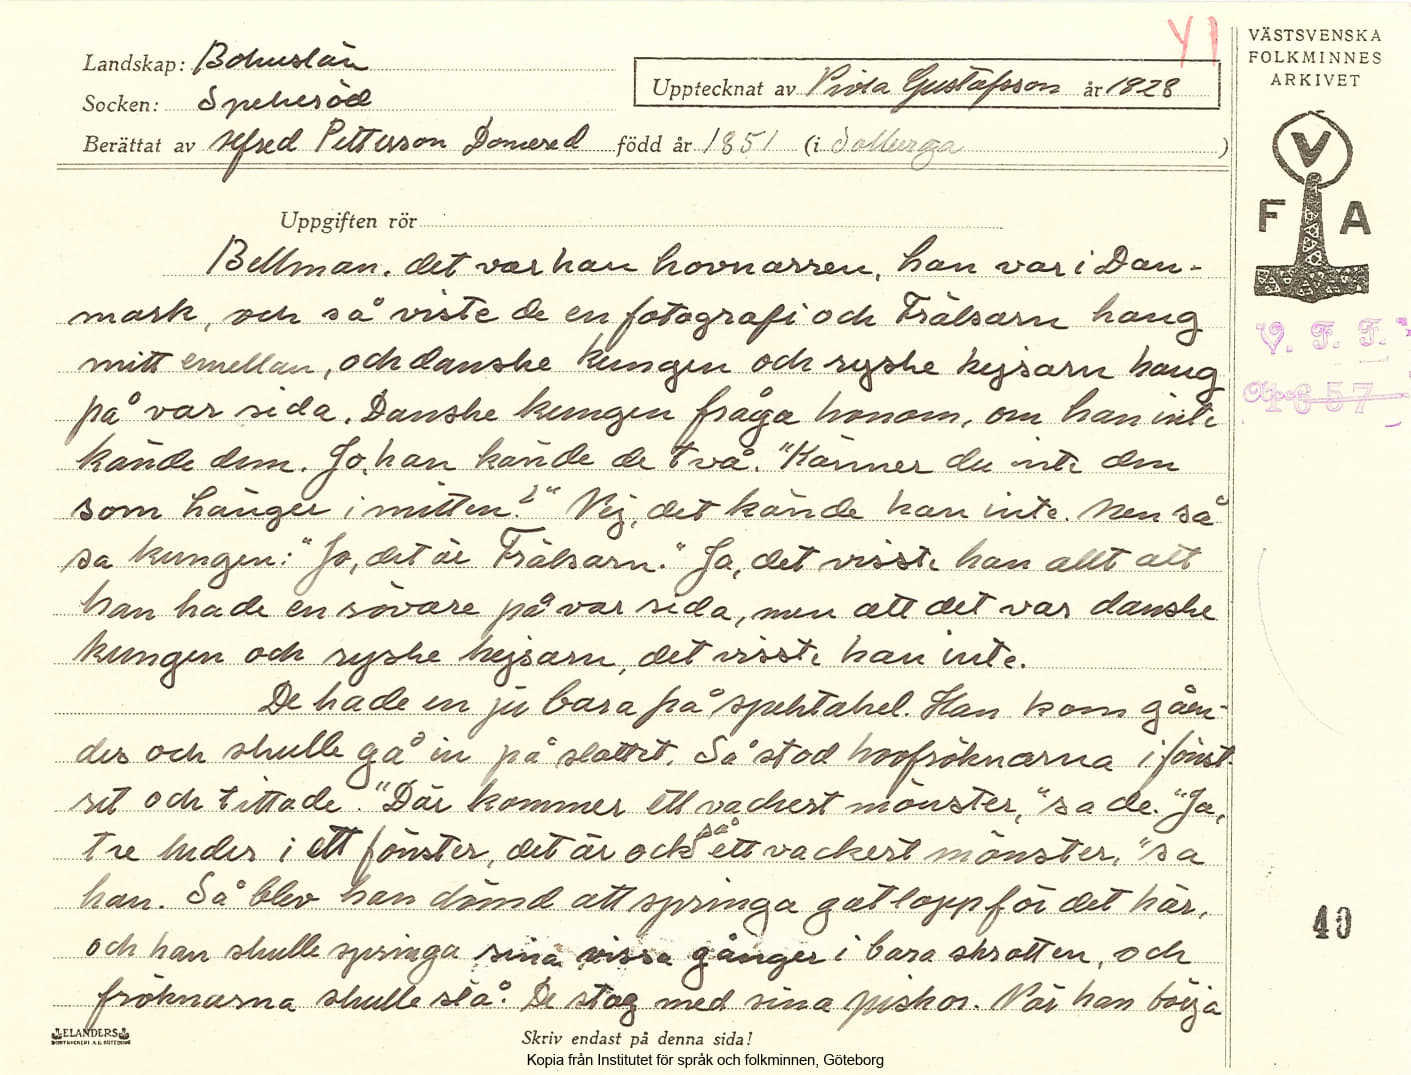 Landskap: Bohuslän
Socken: Spekeröd
Upptecknat av Frida Gustafsson år 1928
Berättat av Alfred Pettersson Domered född år 1851 (i Solberga )
VÄSTSVENSKA
FOLKMINNES
ARKIVET
V
F A
V. F. F.
1657
Uppgiften rör
Bellman. det var han hovnarren, han var i Dan-
mark, och så viste de en fotografi och Frälsarn hang
mitt emellan, och danske kungen och ryske kejsarn hang
på var sida. Danske kungen fråga honom, om han inte
kände dem. Jo, han kände de två. "Känner du inte den
som hänger i mitten?" Nej, det kände han inte. Men så
sa kungen: "Jo, det är Frälsarn." Ja, det visste han allt att
han hade en rövare på var sida, men att det var danske
kungen och ryske kejsarn, det visste han inte.
De hade en ju bara på spektakel. Han kom gåen-
des och skulle gå in på slottet. Så stod hovfröknarna i fönst-
ret och tittade. "Där kommer ett vackert mönster," sa de. "Ja,
tre luder i ett fönster, det är också ett vackert mönster," sa
han. Så blev han dömd att springa gatlopp för det här,
och han skulle springa sina vissa gånger i bara skrotten, och
fröknarna skulle slå. De stog med sina piskor. När han börja
40
ELANDERS
Skriv endast på denna sida!
Kopia från Institutet för språk och folkminnen, Göteborg